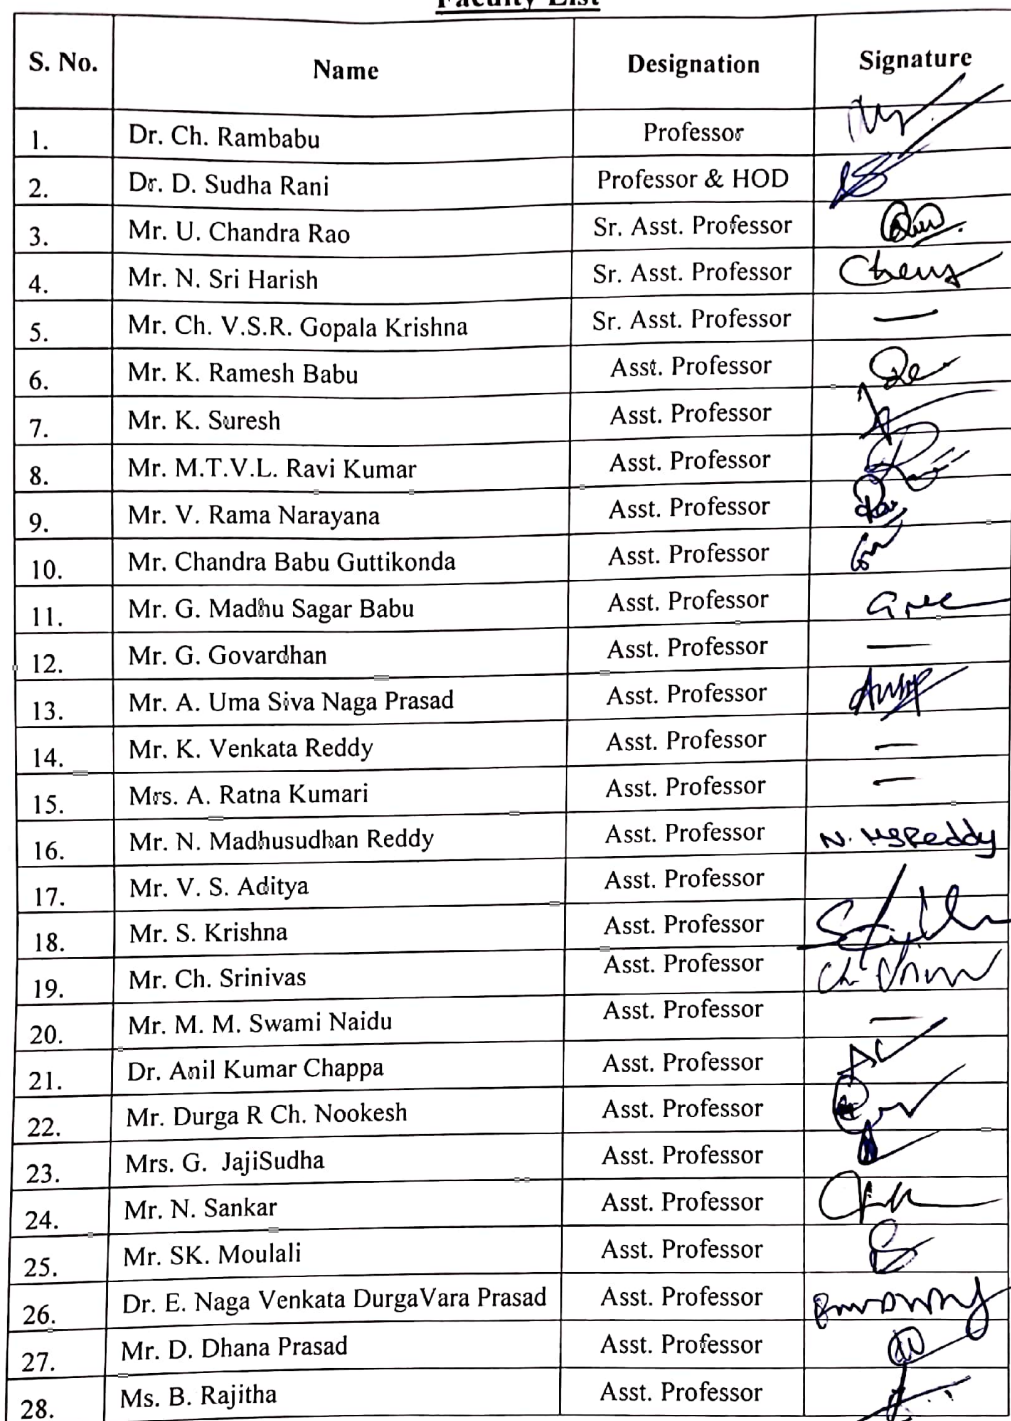 Faculty List
S. No. Name Designation Signature
1. Dr. Ch. Rambabu Professor
2. Dr. D. Sudha Rani Professor & HOD
3. Mr. U. Chandra Rao Sr. Asst. Professor
4. Mr. N. Sri Harish Sr. Asst. Professor
5. Mr. Ch. V.S.R. Gopala Krishna Sr. Asst. Professor —
6. Mr. K. Ramesh Babu Asst. Professor
7. Mr. K. Suresh Asst. Professor
8. Mr. M.T.V.L. Ravi Kumar Asst. Professor
9. Mr. V. Rama Narayana Asst. Professor
10. Mr. Chandra Babu Guttikonda Asst. Professor
11. Mr. G. Madhu Sagar Babu Asst. Professor
12. Mr. G. Govardhan Asst. Professor —
13. Mr. A. Uma Siva Naga Prasad Asst. Professor
14. Mr. K. Venkata Reddy Asst. Professor —
15. Mrs. A. Ratna Kumari Asst. Professor —
16. Mr. N. Madhusudhan Reddy Asst. Professor N. MSReddy
17. Mr. V. S. Aditya Asst. Professor
18. Mr. S. Krishna Asst. Professor
19. Mr. Ch. Srinivas Asst. Professor
20. Mr. M. M. Swami Naidu Asst. Professor —
21. Dr. Anil Kumar Chappa Asst. Professor
22. Mr. Durga R Ch. Nookesh Asst. Professor
23. Mrs. G. JajiSudha Asst. Professor
24. Mr. N. Sankar Asst. Professor
25. Mr. SK. Moulali Asst. Professor
26. Dr. E. Naga Venkata DurgaVara Prasad Asst. Professor
27. Mr. D. Dhana Prasad Asst. Professor
28. Ms. B. Rajitha Asst. Professor